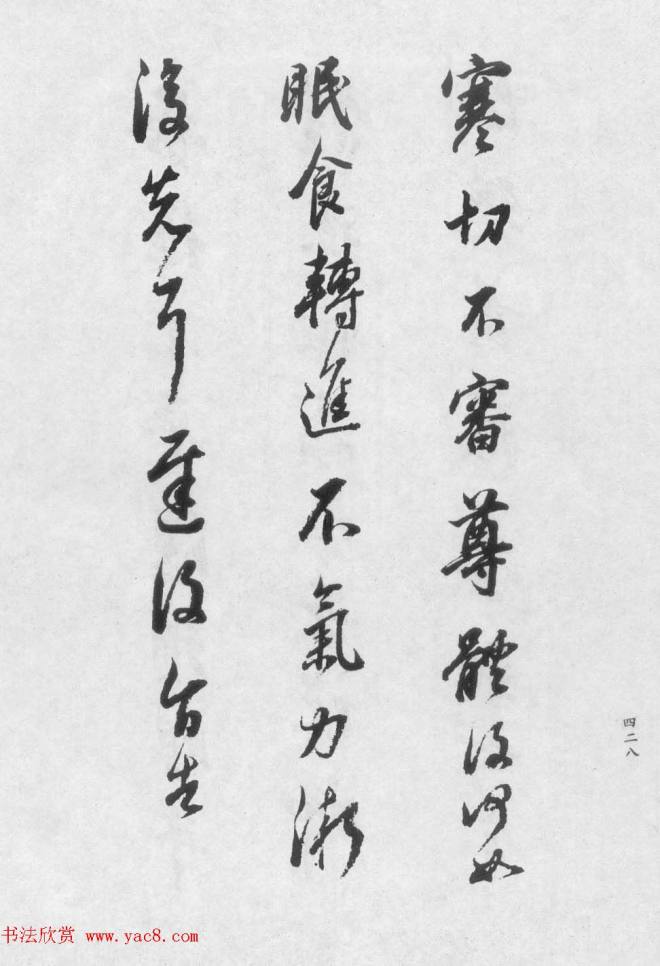 寒切不審尊體復何如
眠食轉進不氣力漸
復先耳遲復旨告
四二八
书法欣赏 www.yac8.com